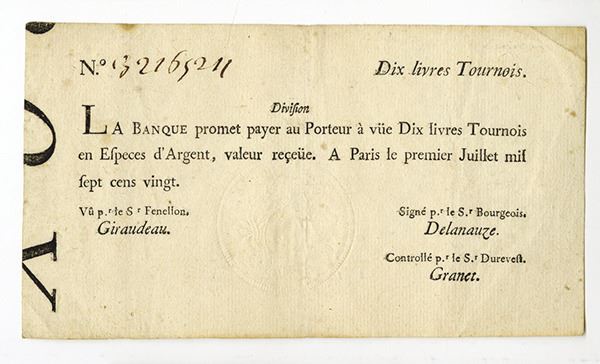 N.º 3216521 Dix livres Tournois.
Diviſion
LA BANQUE promet payer au Porteur à vüe Dix livres Tournois
en Eſpeces d'Argent, valeur reçeüe. A Paris le premier Juillet mil
ſept cens vingt.
Vû p.r le S r Fenellon. Signé p.r le S.r Bourgeois.
Giraudeau. Delanauze.
Controllé p.r le S.r Dureveſt.
Granet.